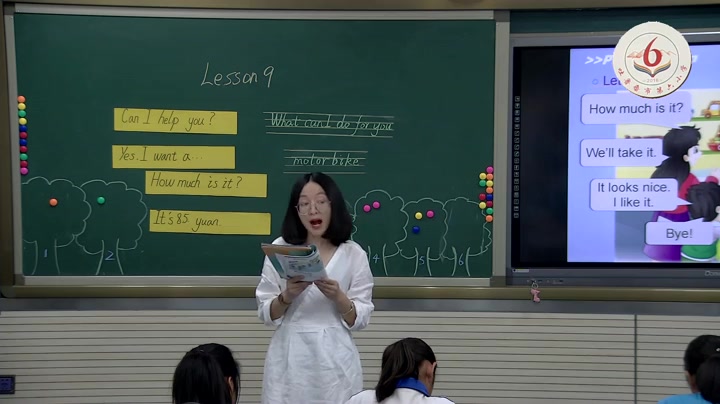 Lesson 9
Can I help you?
Yes. I want a...
How much is it?
It's 85 yuan.
What can I do for you
motorbike
1
2
4
5
6
6
2016
How much is it?
We'll take it.
It looks nice.
I like it.
Bye!